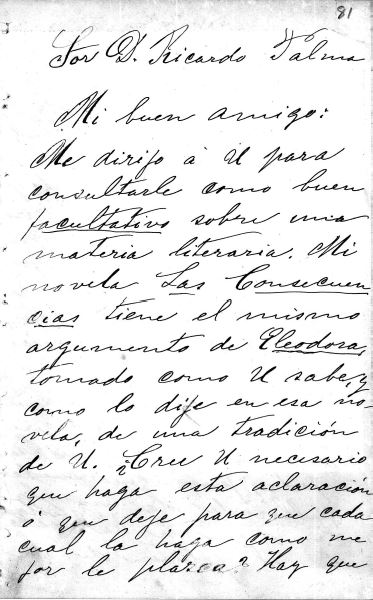 81
Sor D. Ricardo Palma
Mi buen amigo:
Me dirijo á U para
consultarle como buen
facultativo sobre una
materia literaria. Mi
novela Las Consecuen
cias tiene el mismo
argumento de Eleodora,
tomado como U sabe, y
como lo dije en esa no-
vela, de una tradición
de U. ¿Cree U necesario
que haga esta aclaración
ó que deje para que cada
cual la haga como me
jor le plazca? Hay que